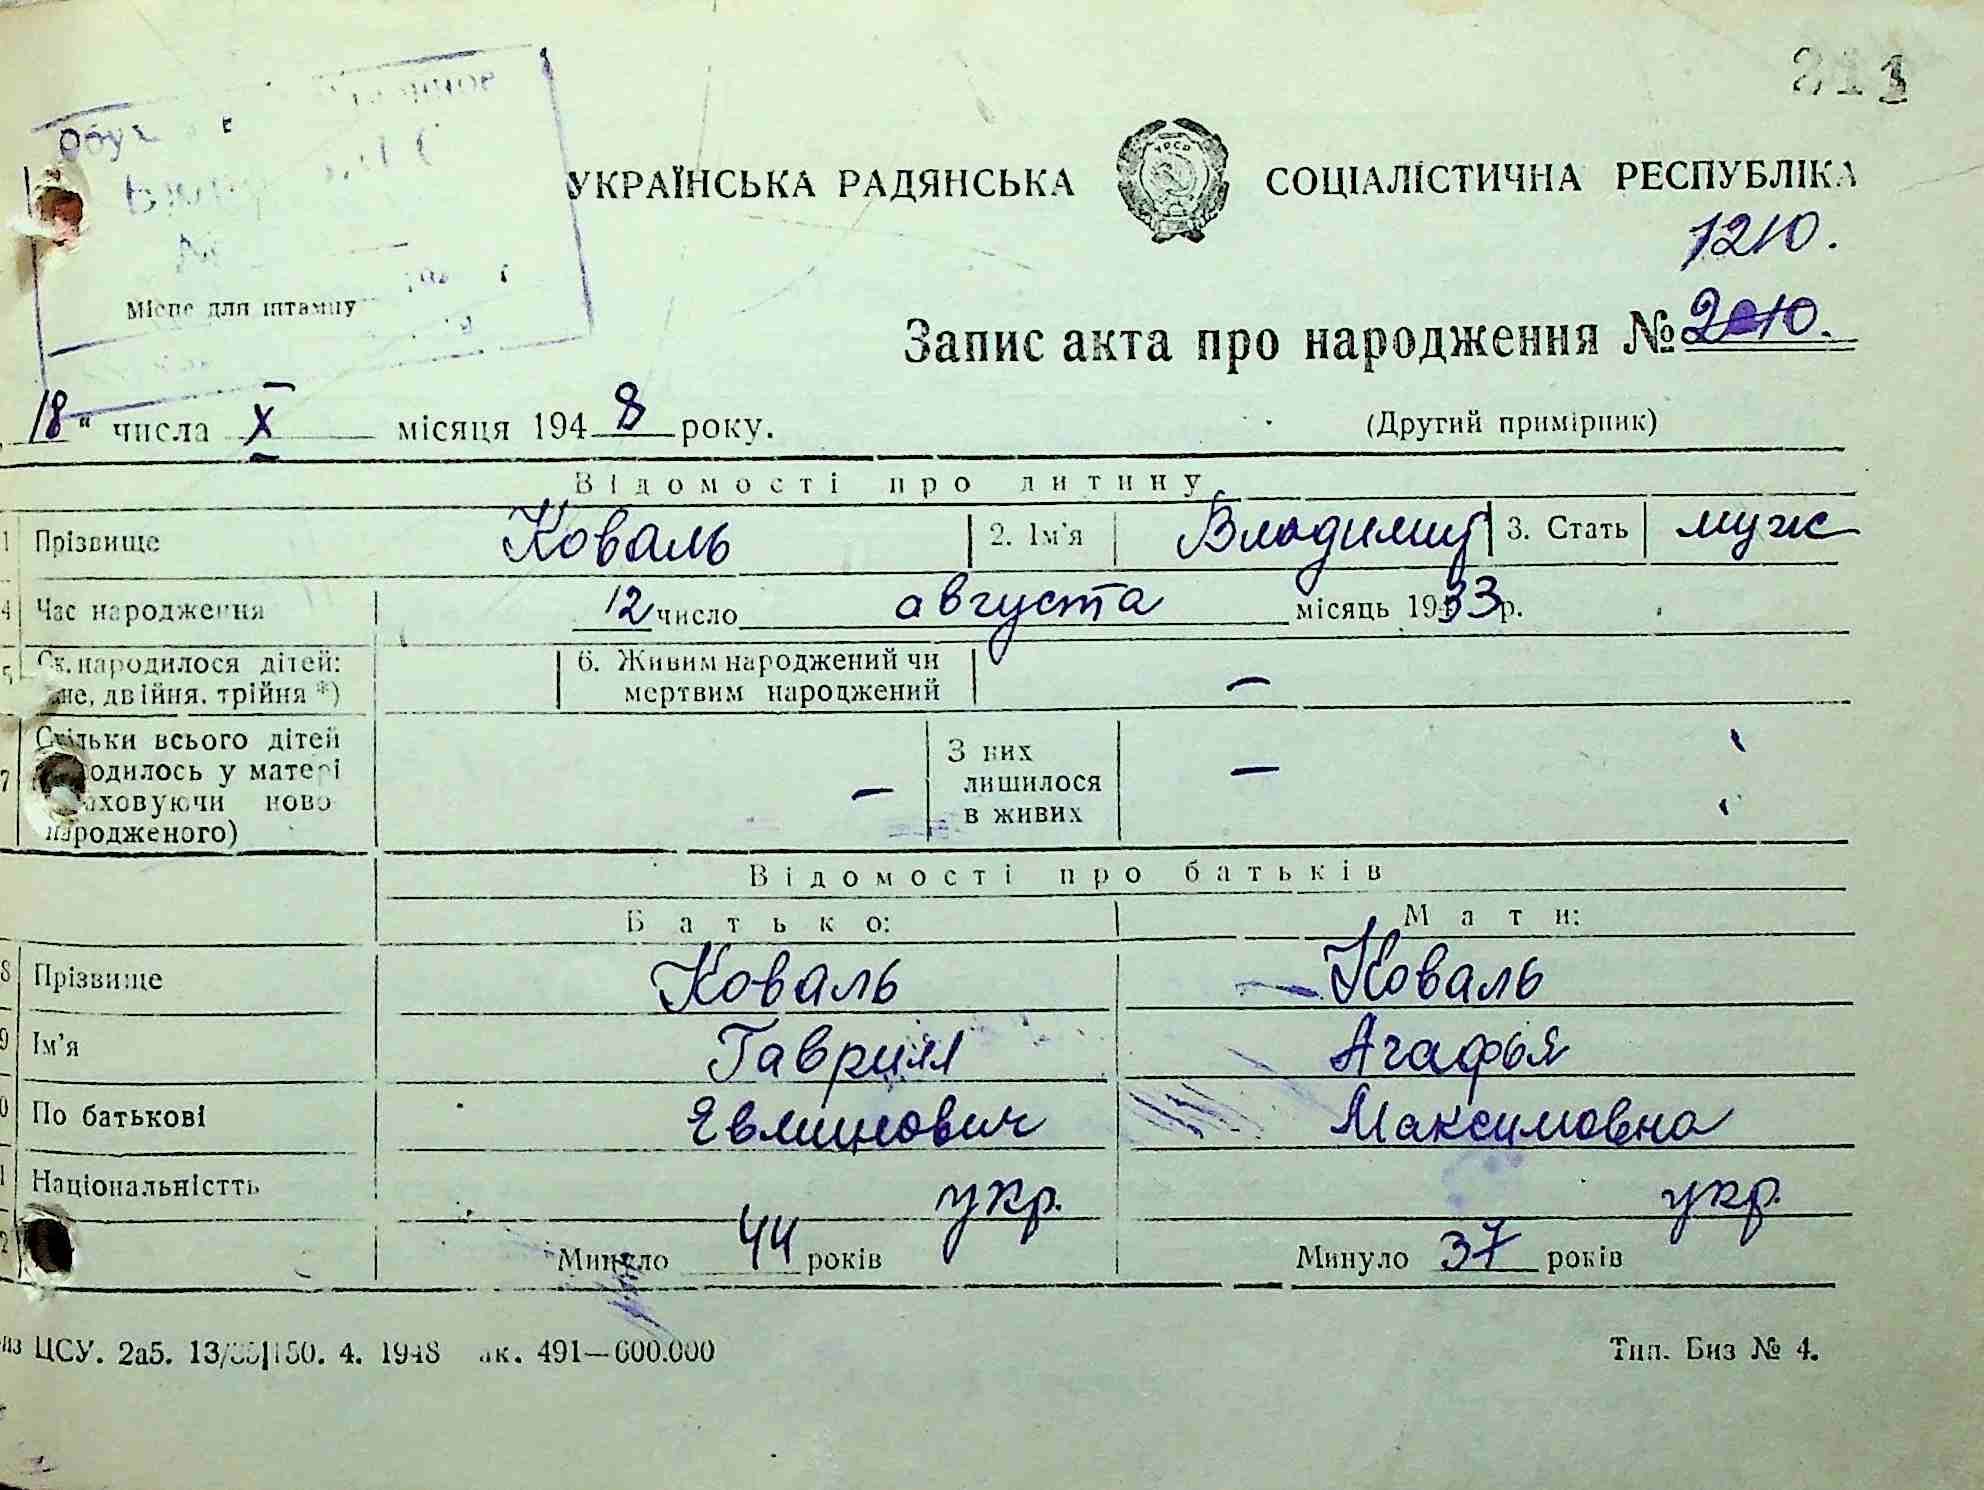 311
УКРАЇНСЬКА РАДЯНСЬКА СОЦІАЛІСТИЧНА РЕСПУБЛІКА
УРСР
1210.
Місце для штампу
Запис акта про народження № 2010.
18 " числа X місяця 1948 року.
(Другий примірник)
Відомості про дитину
1 Прізвище Коваль 2. Ім'я Владимир 3. Стать муж
4 Час народження 12 число августа місяць 1933 р.
5 Ск. народилося дітей: 6. Живим народжений чи –
двійня, трійня *) мертвим народжений
Скільки всього дітей З них
7 у матері – лишилося –
ново в живих
народженого)
Відомості про батьків
Батько: Мати:
8 Прізвище Коваль Коваль
9 Ім'я Гаврил Агафья
0 По батькові Евминович Максимовна
1 Національністть укр. укр.
2 Минуло 44 років Минуло 37 років
ЦСУ. 2а5. 4. 1948 491—600.000 Тип. Биз № 4.